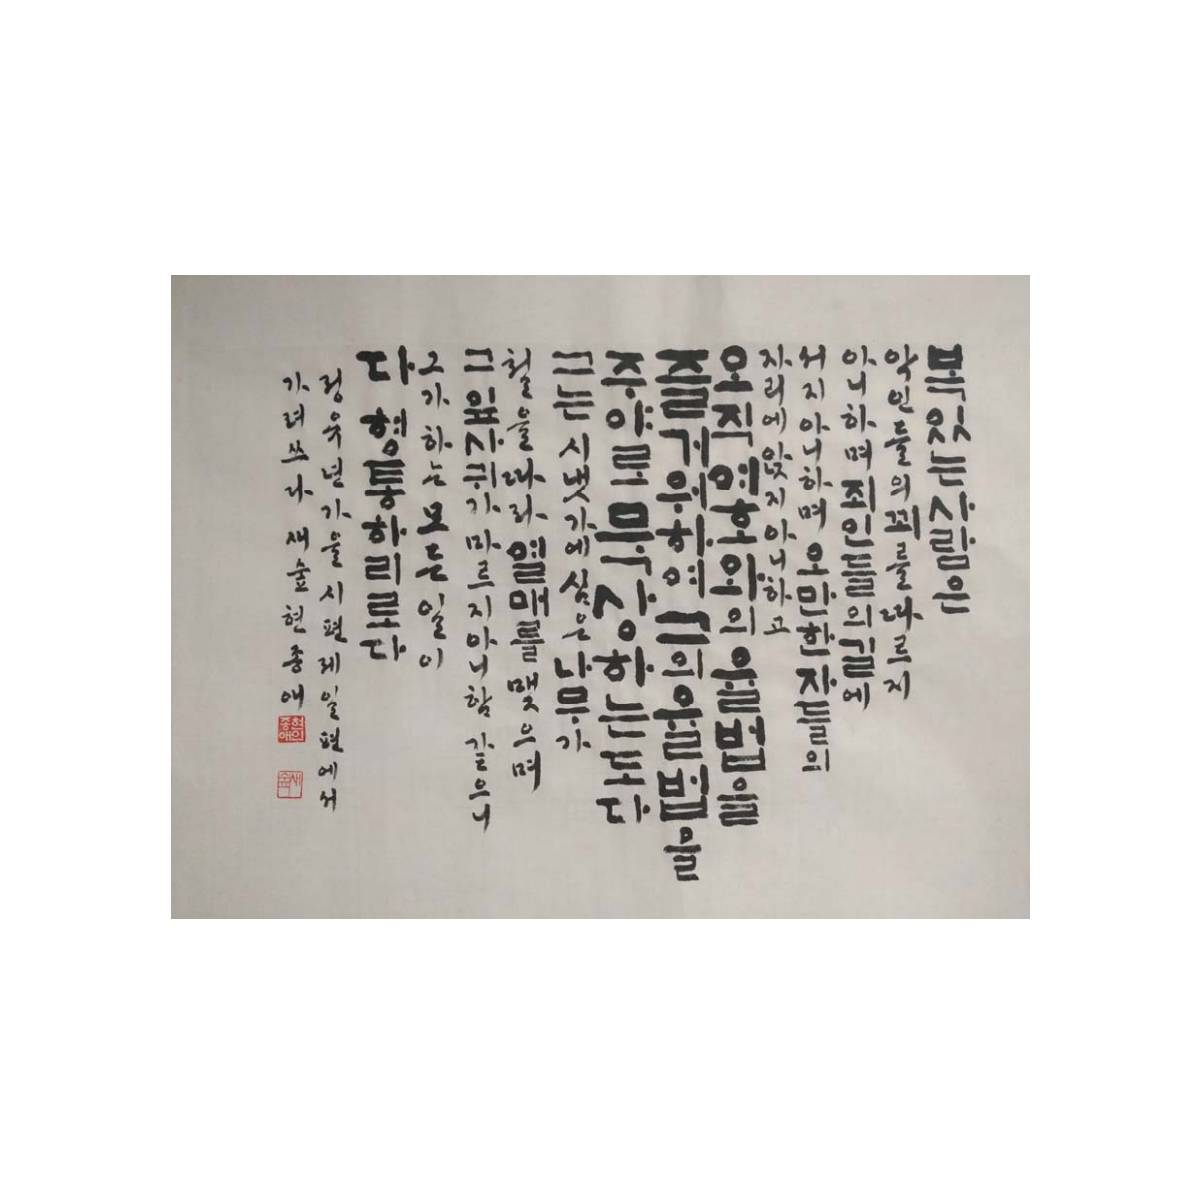 복있는사람은
악인들의꾀를따르지
아니하며죄인들의길에
서지아니하며오만한자들의
자리에앉지아니하고
오직여호와의율법을
즐거워하여그의율법을
주야로묵상하는도다
그는시냇가에심은나무가
철을따라열매를맺으며
그잎사귀가마르지아니함같으니
그가하는모든일이
다형통하리로다
정유년가을시편제일편에서
가려쓰다새숲현종애
현종애인
새숲